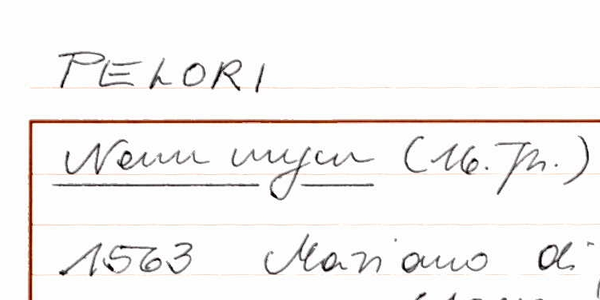 PELORI
Nennungen (16. Jh.)
1563 Mariano di